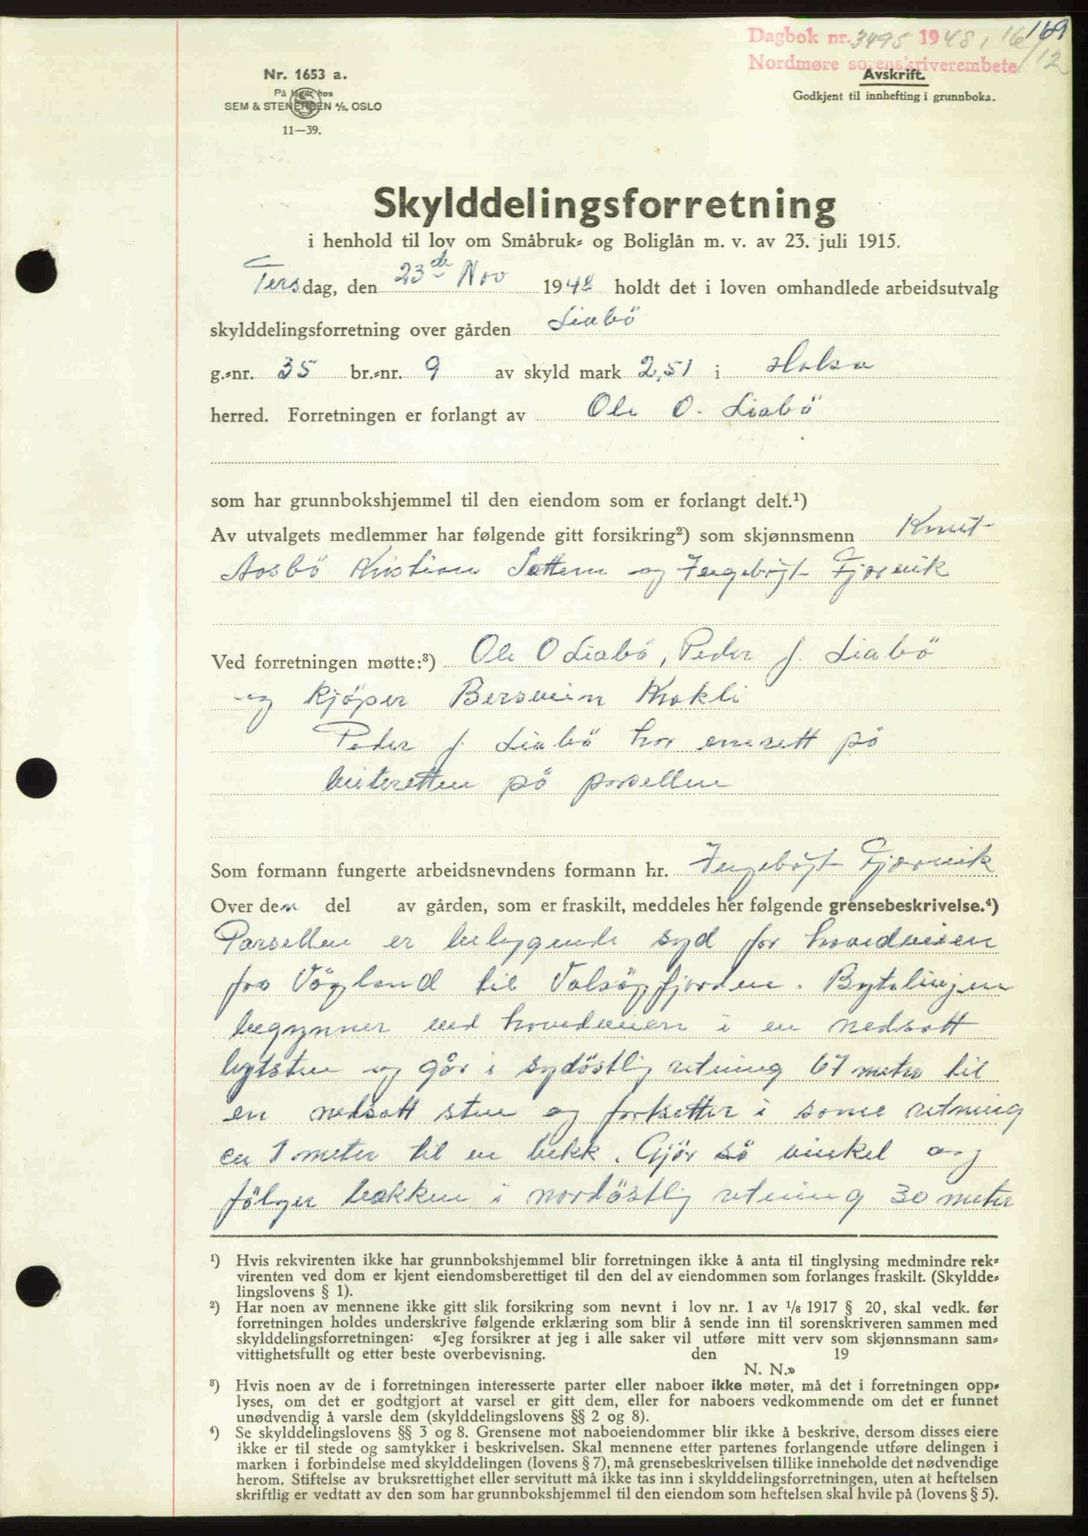 169
Dagbok nr. 3495 1948, 16/12
Nordmøre sorenskriverembete
Nr. 1653 a.
På lager hos
SEM & STENERSEN A/S, OSLO
11—39.
Avskrift.
Godkjent til innhefting i grunnboka.
Skylddelingsforretning
i henhold til lov om Småbruk- og Boliglån m. v. av 23. juli 1915.
Tersdag, den 23de Nov 1948 holdt det i loven omhandlede arbeidsutvalg
skylddelingsforretning over gården Liabö
g.-nr. 35 br.-nr. 9 av skyld mark 2,51 i Halsa
herred. Forretningen er forlangt av Ole O. Liabö
som har grunnbokshjemmel til den eiendom som er forlangt delt.¹)
Av utvalgets medlemmer har følgende gitt forsikring²) som skjønnsmenn Knut
Aasbö Kristian Sættem og Ingebrigt Gjærvik
Ved forretningen møtte:³) Ole O Liabö, Peder J. Liabö
og kjöper Bersvein Krokli
Peder J. Liabö har ensrett på
beiteretten på parsellen
Som formann fungerte arbeidsnevndens formann hr. Ingebrigt Gjærvik
Over den del av gården, som er fraskilt, meddeles her følgende grensebeskrivelse.⁴)
Parsellen er beliggende syd for hovedveien
fra Vågland til Valsöyfjorden. Bytelinjen
begynner ved hovedveien i en nedsatt
bytsten og går i sydöstlig retning 67 meter til
en nedsatt sten og fortsetter i samme retning
ca 1 meter til en bekk. Gjör så vinkel og
fölger bekken i nordöstlig retning 30 meter
¹) Hvis rekvirenten ikke har grunnbokshjemmel blir forretningen ikke å anta til tinglysing medmindre rek-
virenten ved dom er kjent eiendomsberettiget til den del av eiendommen som forlanges fraskilt. (Skyldde-
lingslovens § 1).
²) Har noen av mennene ikke gitt slik forsikring som nevnt i lov nr. 1 av 1/8 1917 § 20, skal vedk. før
forretningen holdes underskrive følgende erklæring som blir å sende inn til sorenskriveren sammen med
skylddelingsforretningen: «Jeg forsikrer at jeg i alle saker vil utføre mitt verv som skjønnsmann sam-
vittighetsfullt og etter beste overbevisning. den 19
N. N.»
³) Hvis noen av de i forretningen interesserte parter eller naboer ikke møter, må det i forretningen opp-
lyses, om det er godtgjort at varsel er gitt dem, eller for naboers vedkommende om det er funnet
unødvendig å varsle dem (skylddelingslovens §§ 2 og 8).
⁴) Se skylddelingslovens §§ 3 og 8. Grensene mot naboeiendommer blir ikke å beskrive, dersom disses eiere
ikke er til stede og samtykker i beskrivelsen. Skal mennene etter partenes forlangende utføre delingen i
marken i forbindelse med skylddelingen (lovens § 7), må grensebeskrivelsen tillike inneholde det nødvendige
herom. Stiftelse av bruksrettighet eller servitutt må ikke tas inn i skylddelingsforretningen, uten at heftelsen
skriftlig er vedtatt av den som har grunnbokshjemmel til den eiendom som heftelsen skal hvile på (lovens § 5).